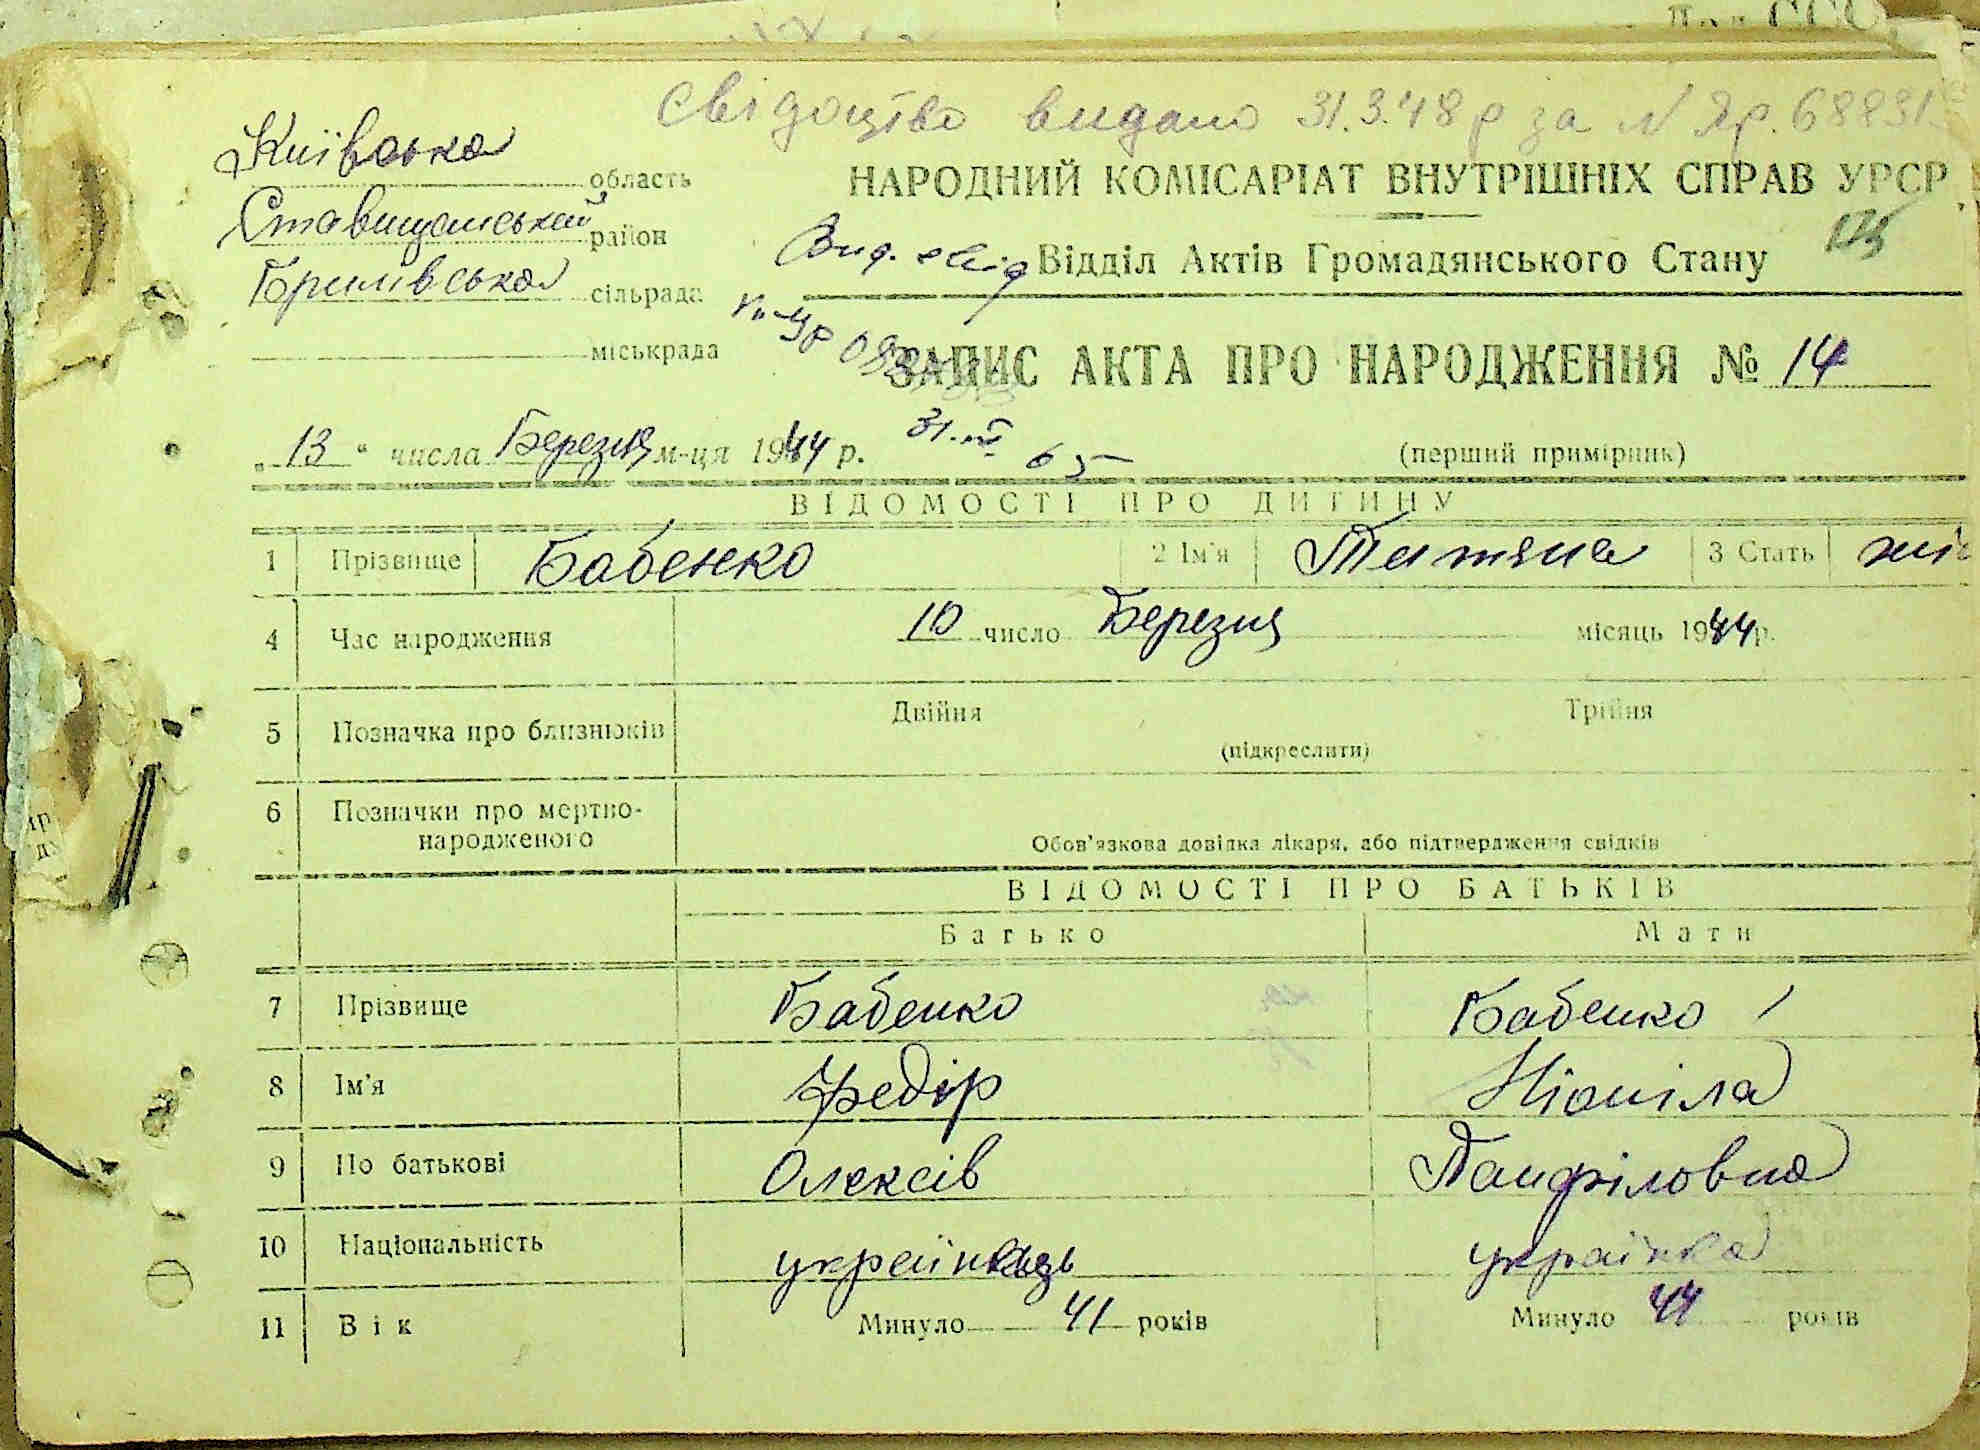 Свідоцтво видано 31.3.48 р за N Яр. 68831
Київська область
Ставищанський район
Бримівська сільрада
міськрада
НАРОДНИЙ КОМІСАРІАТ ВНУТРІШНІХ СПРАВ УРСР
Вид. свід Відділ Актів Громадянського Стану
ЗАПИС АКТА ПРО НАРОДЖЕННЯ № 14
„13“ числа Березня м-ця 1944 р.
31.III 65
(перший примірник)
ВІДОМОСТІ ПРО ДИТИНУ
1 Прізвище Бабенко 2 Ім'я Татяна 3 Стать
4 Час народження 10 число Березня місяць 1944 р.
5 Позначка про близнюків Двійня Трійня
(підкреслити)
6 Позначки про мертво-
народженого
Обов'язкова довідка лікаря, або підтвердження свідків
ВІДОМОСТІ ПРО БАТЬКІВ
Батько Мати
7 Прізвище Бабенко Бабенко
8 Ім'я Федір Ніоніла
9 По батькові Олексів Панфіловна
10 Національність українець українка
11 Вік Минуло 41 років Минуло 44 років